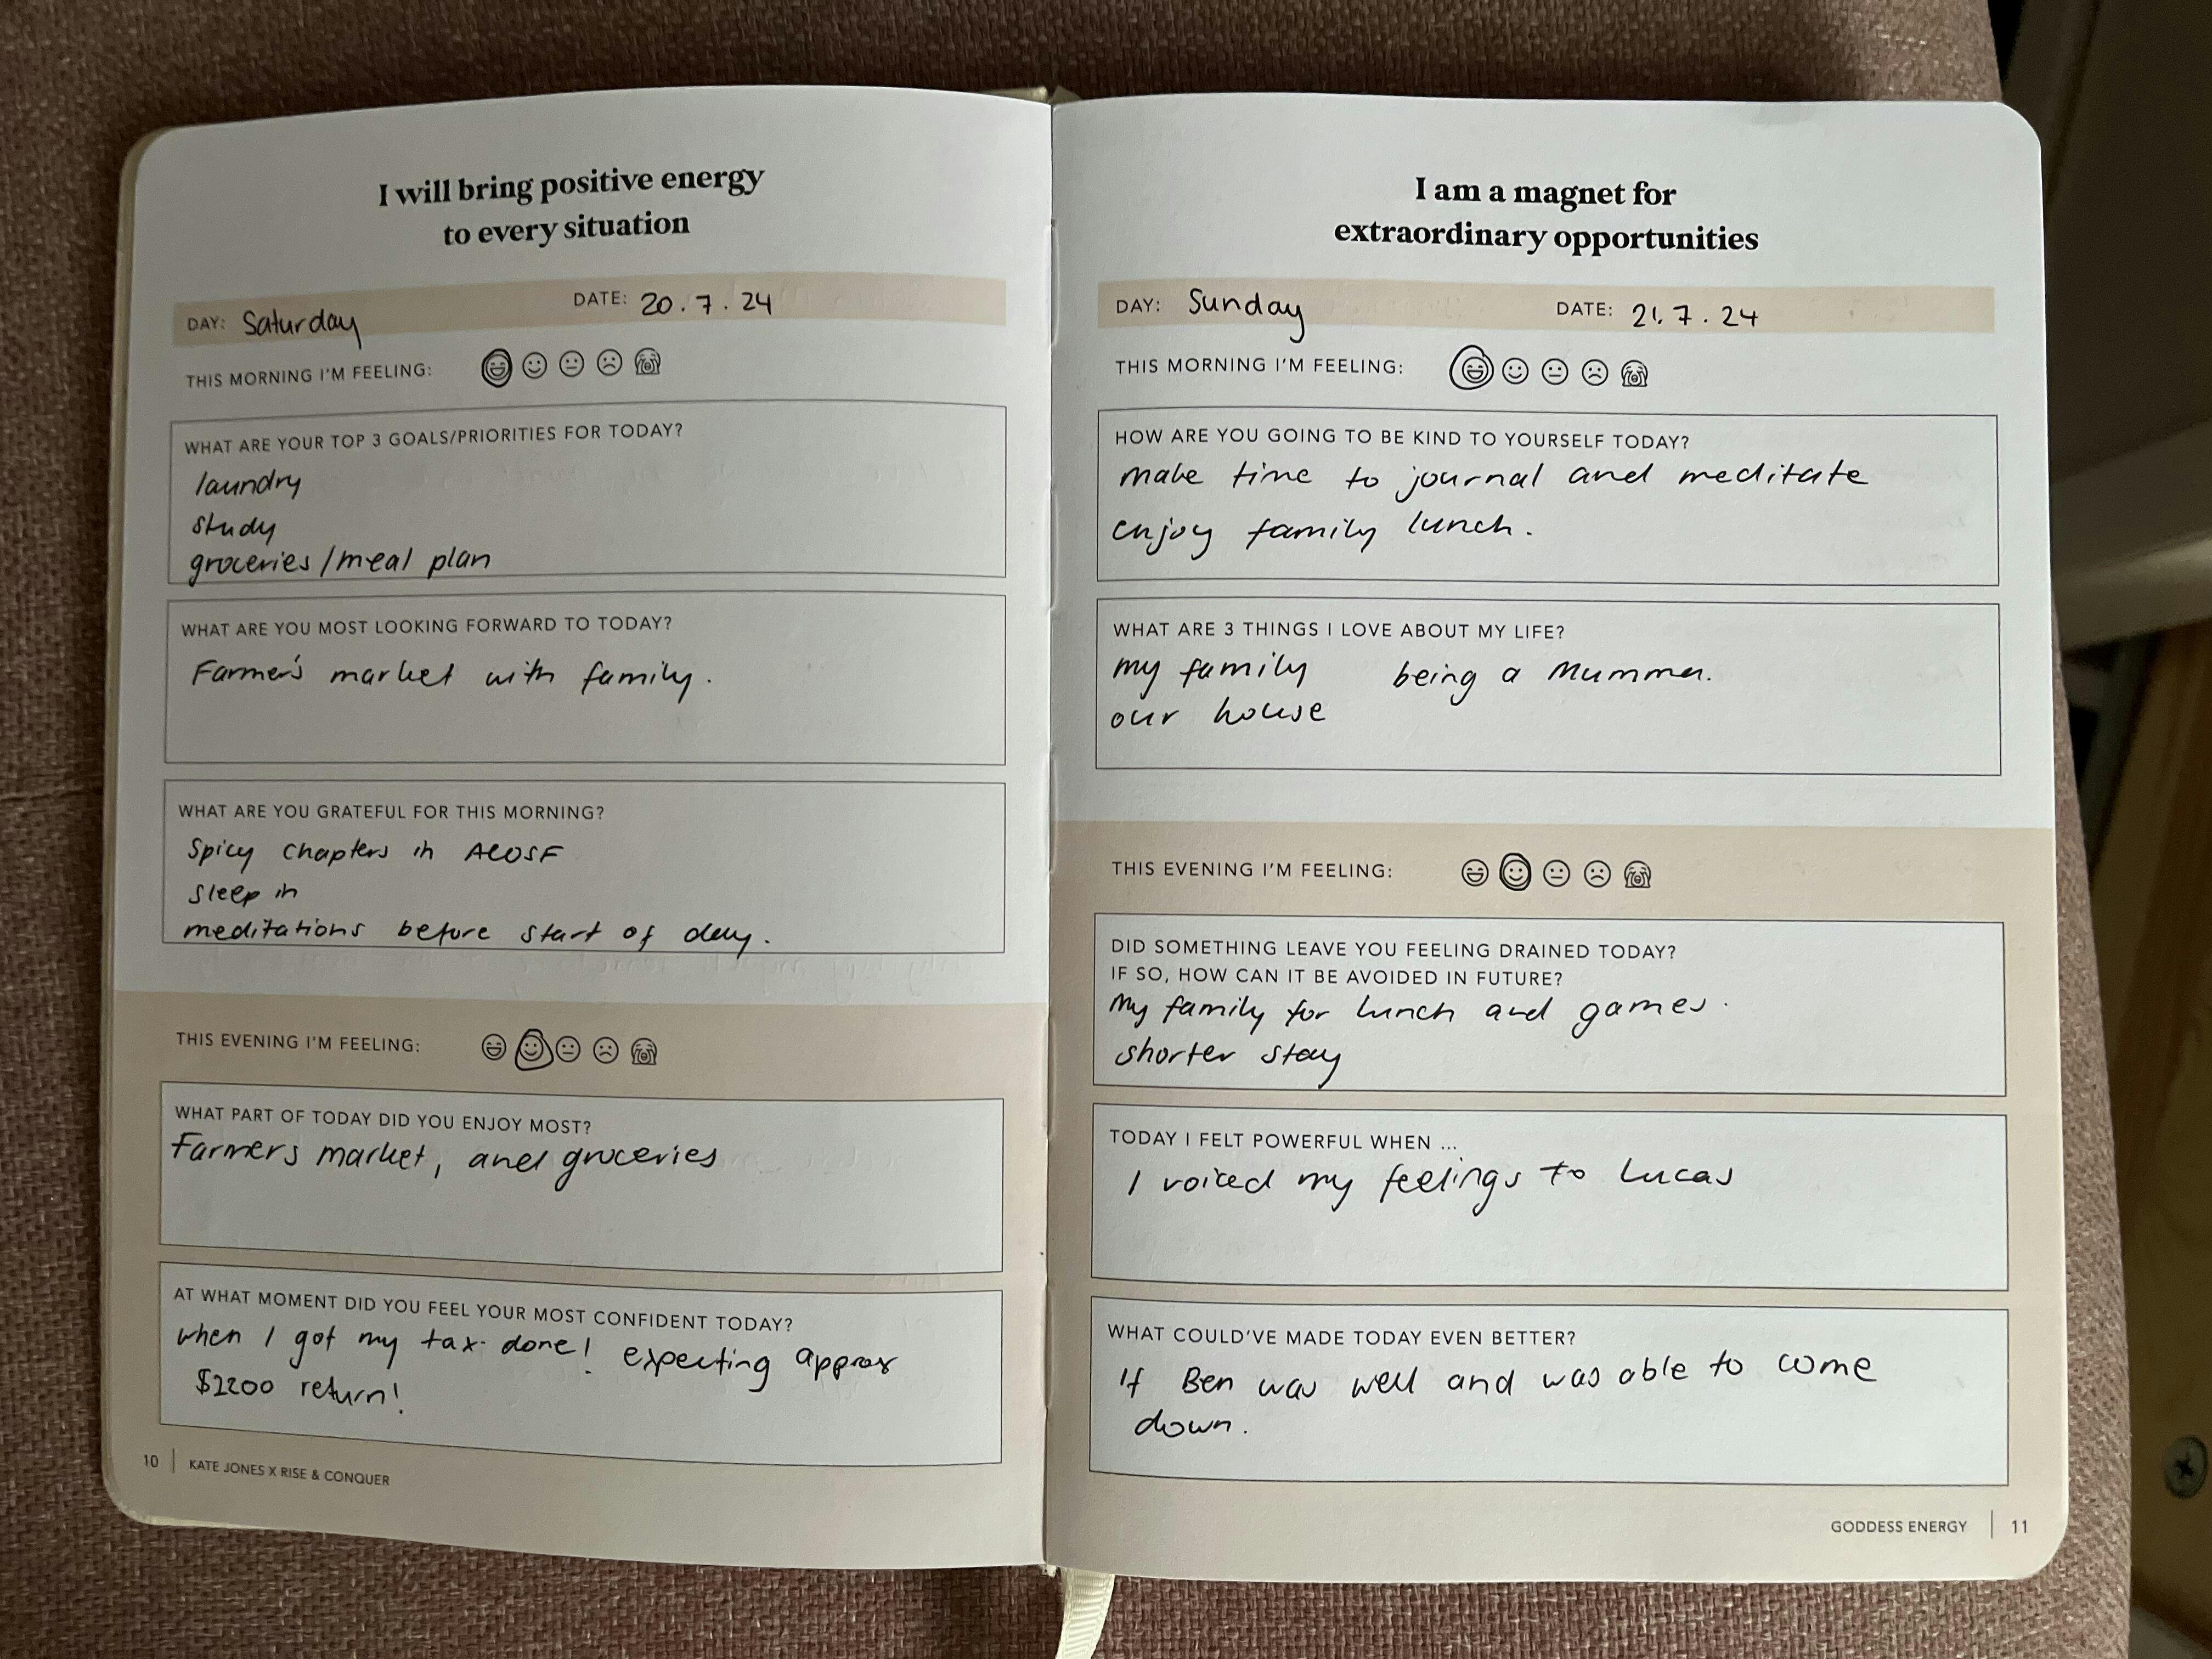 I will bring positive energy
to every situation
DAY: Saturday DATE: 20.7.24
THIS MORNING I'M FEELING:
WHAT ARE YOUR TOP 3 GOALS/PRIORITIES FOR TODAY?
laundry
study
groceries/meal plan
WHAT ARE YOU MOST LOOKING FORWARD TO TODAY?
Farmer's market with family.
WHAT ARE YOU GRATEFUL FOR THIS MORNING?
Spicy chapters in ACOSF
sleep in
meditations before start of day.
THIS EVENING I'M FEELING:
WHAT PART OF TODAY DID YOU ENJOY MOST?
Farmers market, and groceries
AT WHAT MOMENT DID YOU FEEL YOUR MOST CONFIDENT TODAY?
when I got my tax done! expecting approx
$2200 return!
10 | KATE JONES X RISE & CONQUER
I am a magnet for
extraordinary opportunities
DAY: Sunday DATE: 21.7.24
THIS MORNING I'M FEELING:
HOW ARE YOU GOING TO BE KIND TO YOURSELF TODAY?
make time to journal and meditate
enjoy family lunch.
WHAT ARE 3 THINGS I LOVE ABOUT MY LIFE?
my family being a Mumma.
our house
THIS EVENING I'M FEELING:
DID SOMETHING LEAVE YOU FEELING DRAINED TODAY?
IF SO, HOW CAN IT BE AVOIDED IN FUTURE?
My family for lunch and games.
shorter stay
TODAY I FELT POWERFUL WHEN ...
I voiced my feelings to Lucas
WHAT COULD'VE MADE TODAY EVEN BETTER?
If Ben was well and was able to come
down.
GODDESS ENERGY | 11